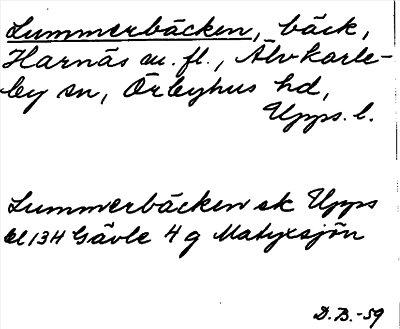 Lummerbäcken, bäck,
Harnäs m. fl., Älvkarle-
by sn, Örbyhus hd,
Upps. l.
Lummerbäcken ek Upps
bl 134 Gävle 4 g Matyxsjön
D.B.-59